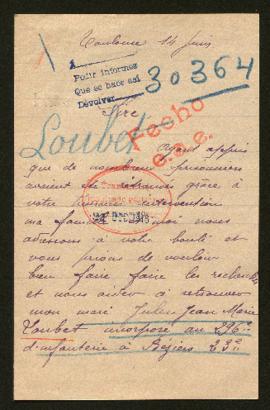 Toulouse 14 Juin
Pour informes
Que se hace así
Devolver
30364
Sire
Loubet
Fecho
Ayant appris
que de nombreux prisonniers
avaient été retrouvés grâce à
votre intervention
ma famille moi nous
adressons à votre bonté et
vous prions de vouloir
bien faire faire les recherches
et nous aider à retrouver
mon mari Julien Jean Marie
Loubet incorporé au 296e
d'infanterie à Béziers 23e